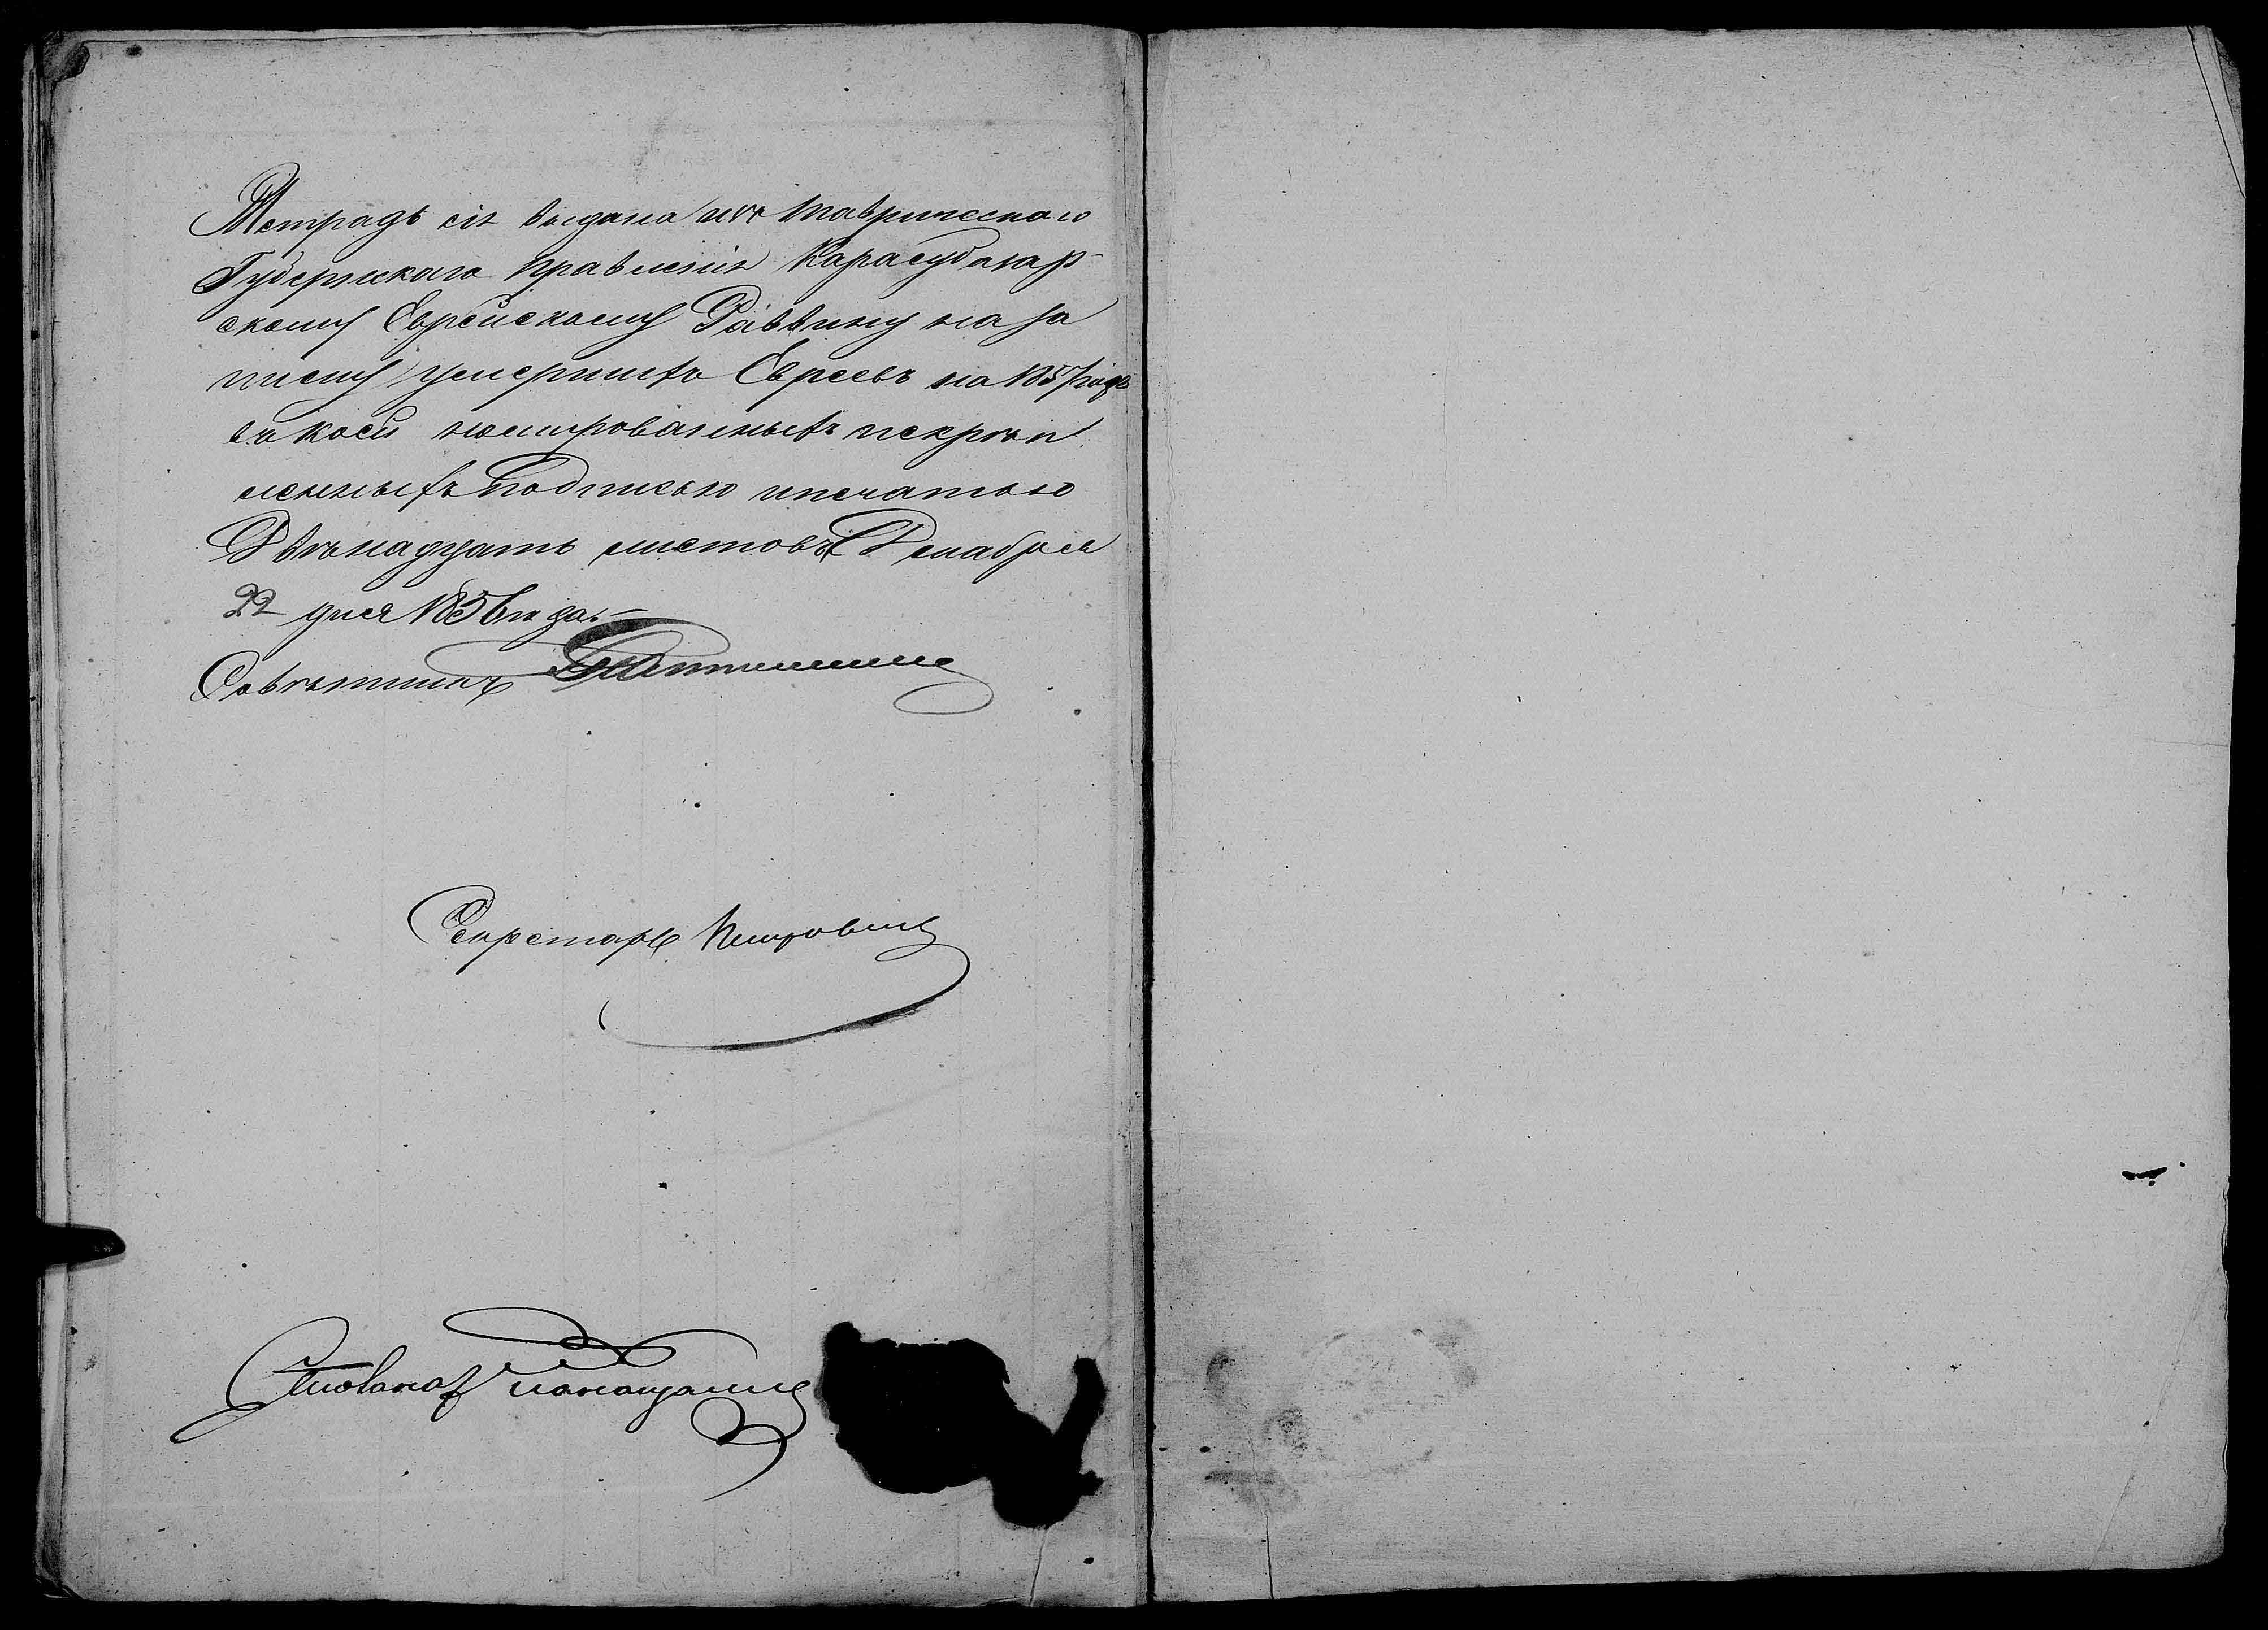 Тетрадь сія выдана изъ Таврическаго
Губернскаго Правленія Карасубазар-
скому Еврейскому Раввину на за
писку умершихъ Евреевъ на 1857 годъ
въ коей номерованныхъ и скреп
ленныхъ подписью и печатью
Двѣнадцать листовъ Декабря
22 дня 1856 года.
Совѣтникъ
Секретарь